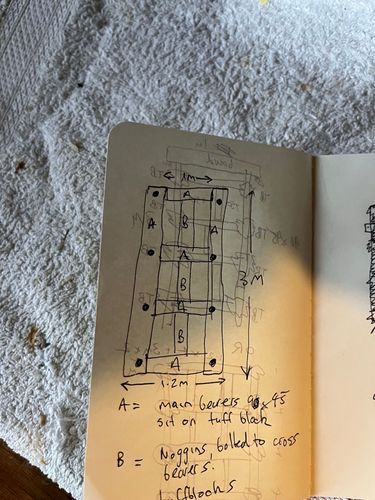 1m
A
A
B
A
A
B
A
B
A
3M
1.2m
A = main bearers 90x45
sit on tuff block
B = Noggins, bolted to cross
bearers.
tuffblocks